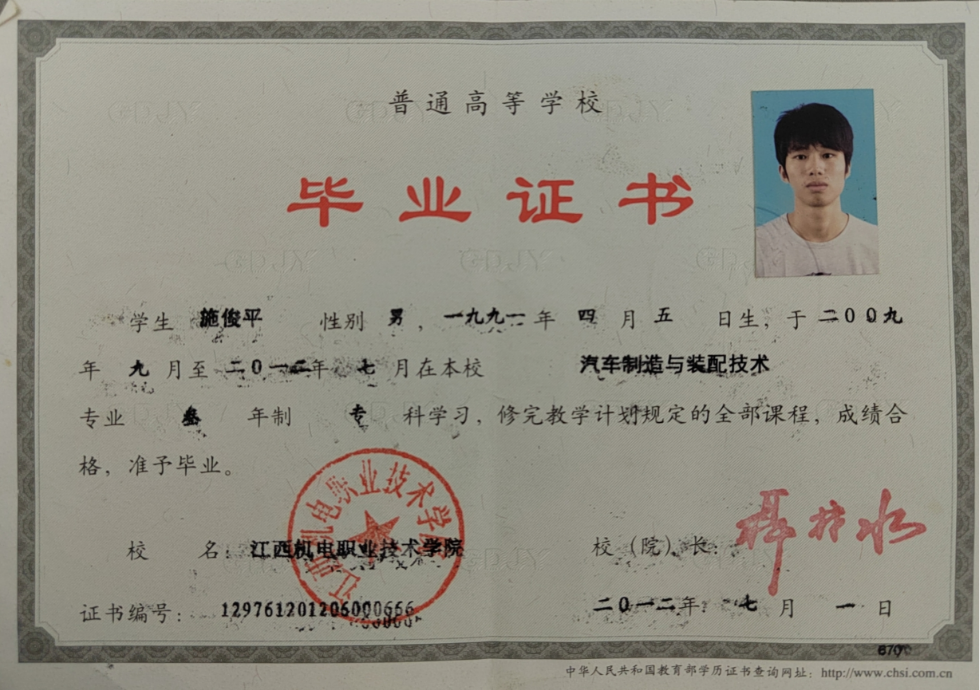 普通高等学校
毕业证书
学生 施俊平 性别 男，一九九一年 四 月 五 日生，于二00九
年 九 月至 二0一二年 七 月在本校 汽车制造与装配技术
专业 叁 年制 专 科学习，修完教学计划规定的全部课程，成绩合
格，准予毕业。
江西机电职业技术学院
校 名：江西机电职业技术学院 校（院）长：
证书编号：129761201206000666 二0一二年 七 月 一 日
中华人民共和国教育部学历证书查询网址：http://www.chsi.com.cn